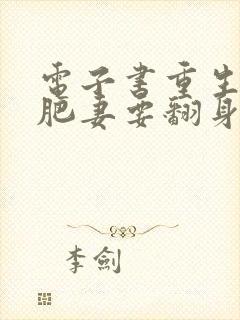 電子书重生
肥妻要翻身
李劍